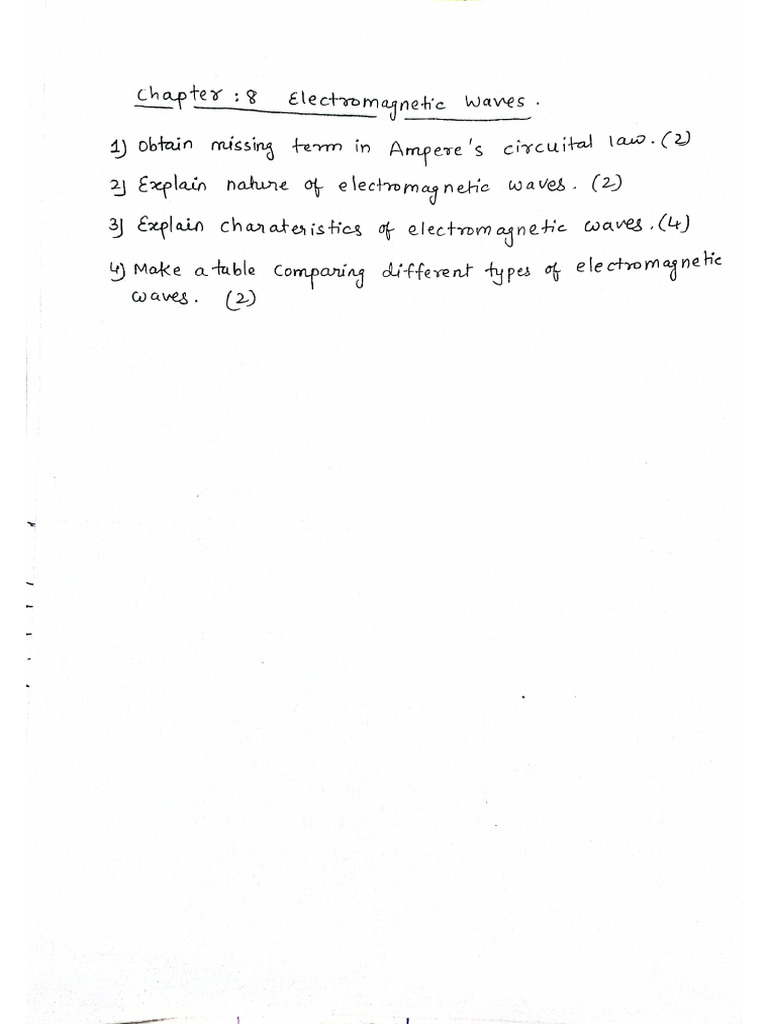 Chapter : 8 Electromagnetic Waves.
1) Obtain missing term in Ampere's circuital law. (2)
2) Explain nature of electromagnetic waves. (2)
3) Explain charateristics of electromagnetic waves. (4)
4) Make a table comparing different types of electromagnetic
waves. (2)